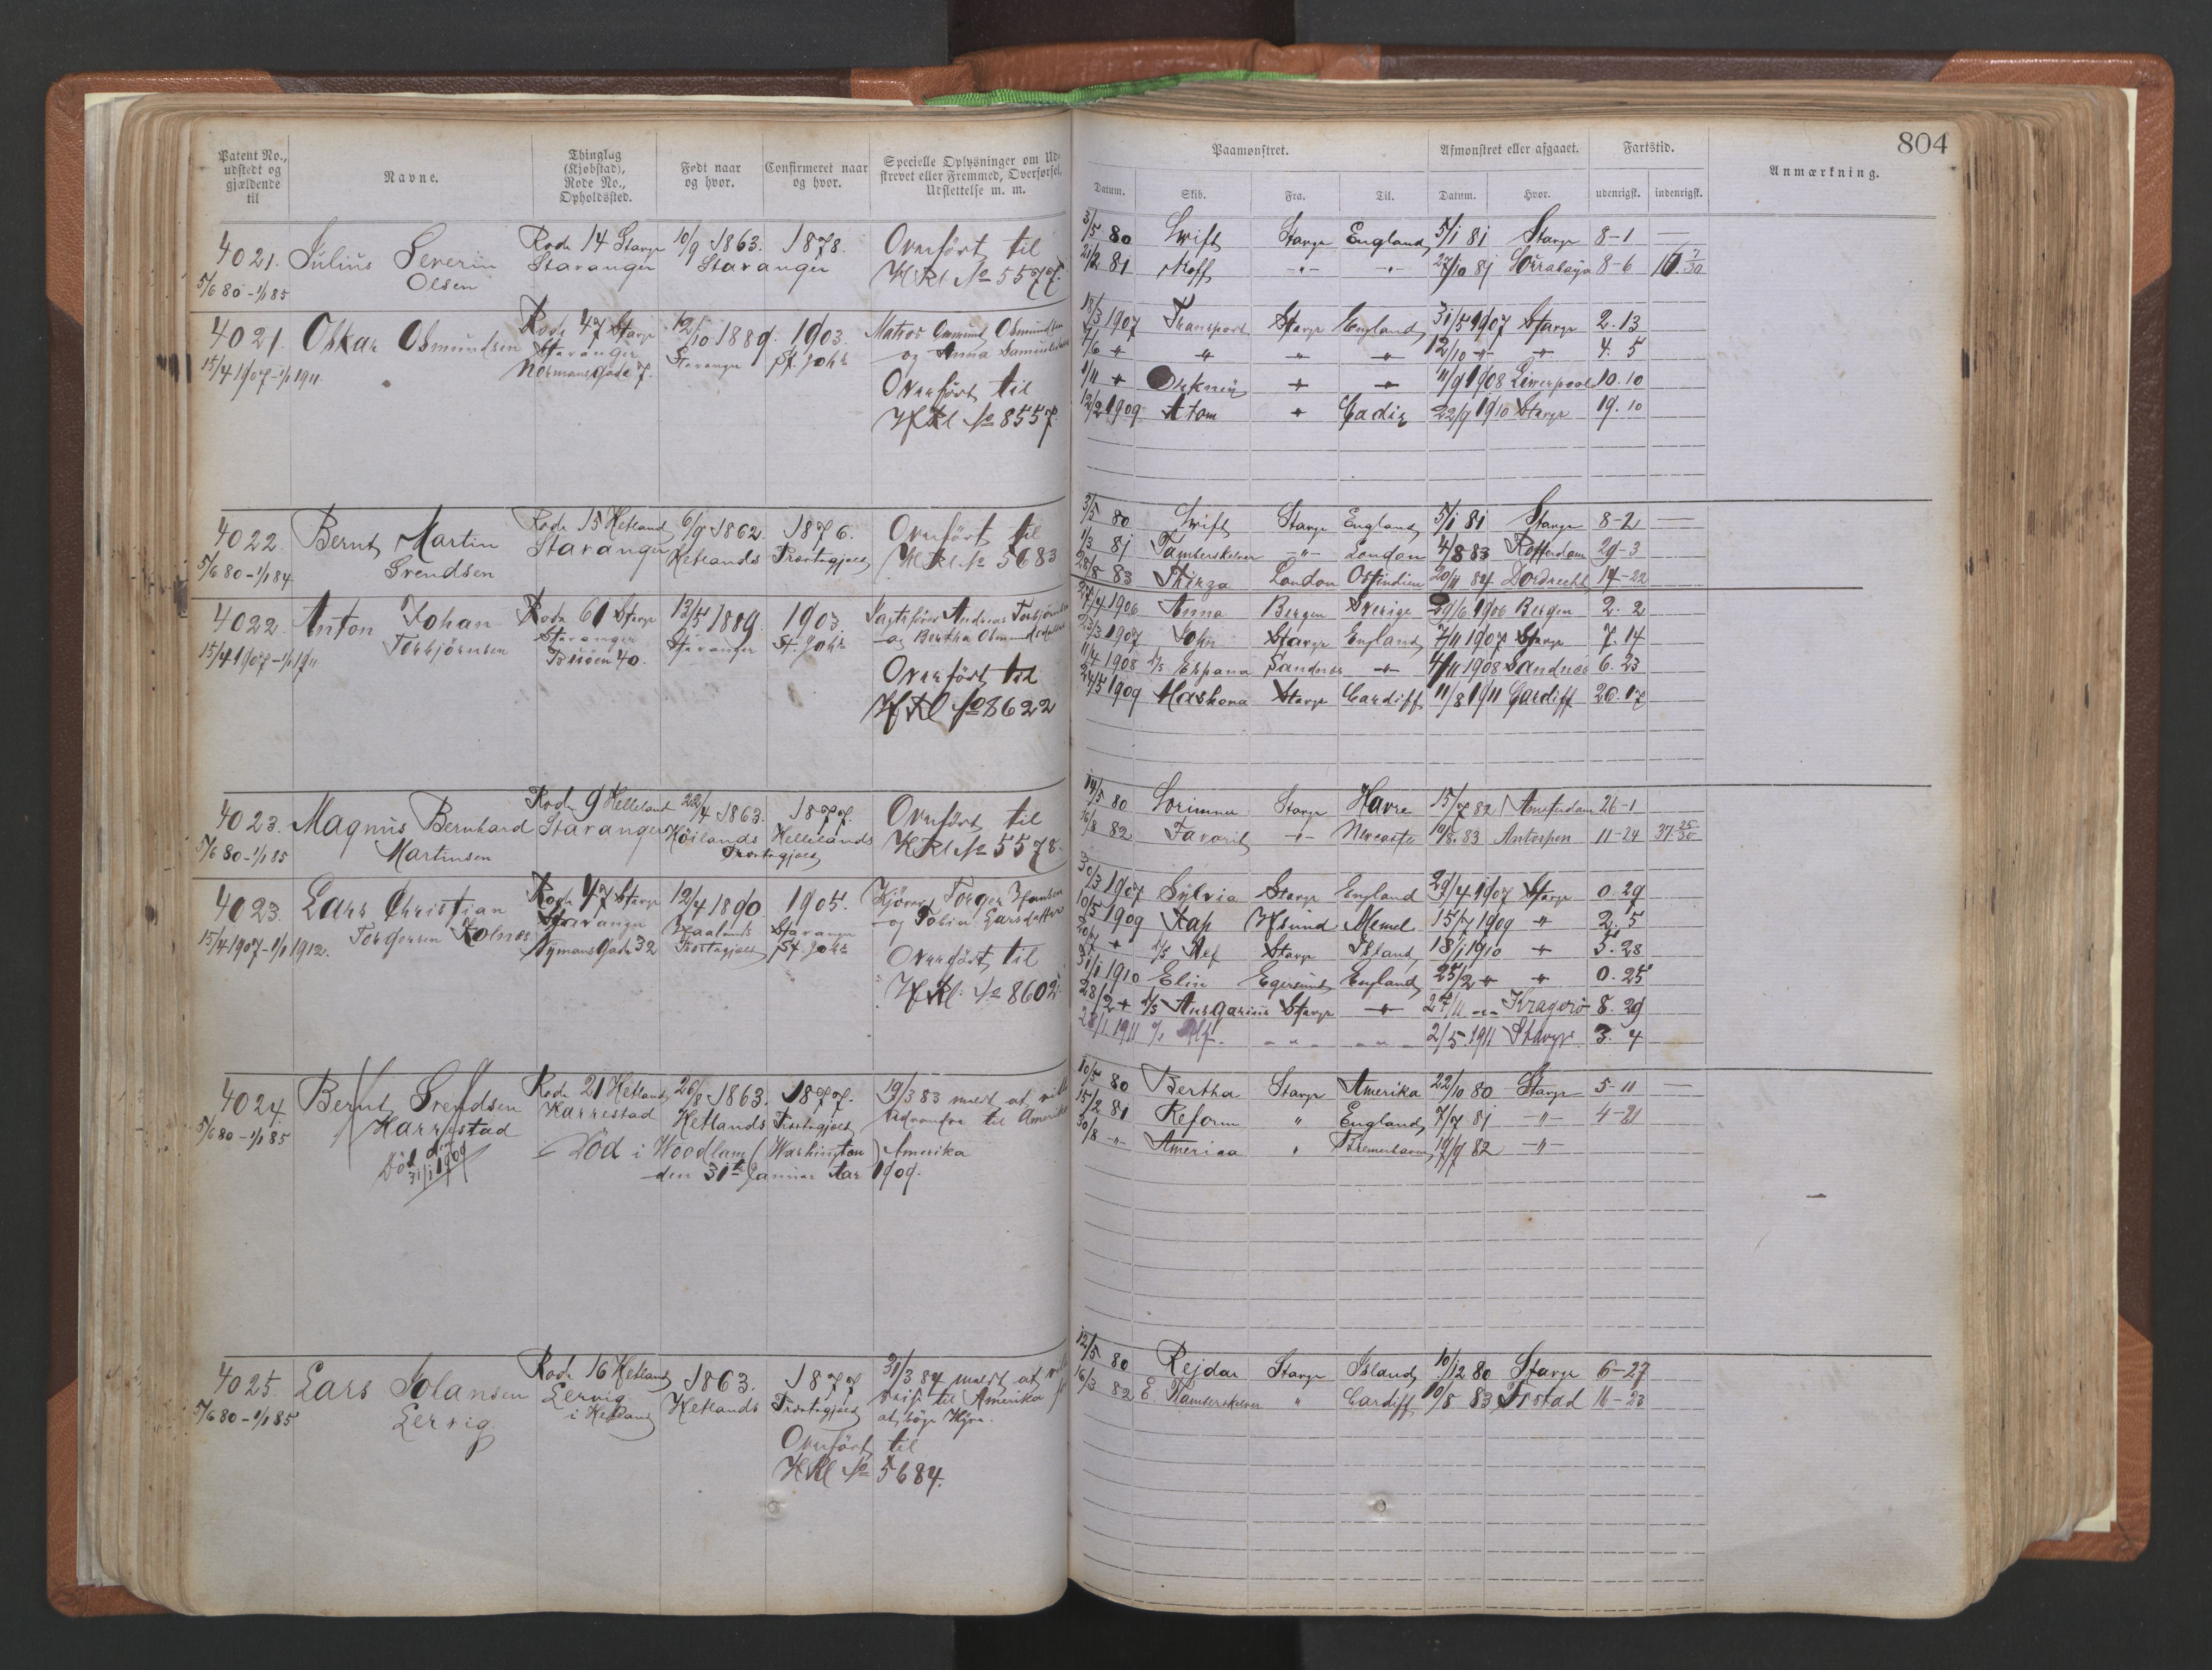 804
Patent No., udstedt og gjældende til
Navne.
Thinglag (Kjøbstad), Rode No., Opholdssted.
Født naar og hvor.
Confirmeret naar og hvor.
Specielle Oplysninger om Udskrevet eller Fremmed, Overførsel, Udslettelse m. m.
Paamønstret.
Datum.
Skib.
Fra.
Til.
Afmønstret eller afgaaet.
Datum.
Hvor.
Fartstid.
udenrigsk.
indenrigsk.
Anmærkning.
4021. Julius Severin Rode 14 Stavgr 10/9 1863. 1878. Overfört til
5/6 80 - 1/1 85 Olsen Stavanger Stavanger HRl No 5577.
3/5 80 Swift Stavgr England 5/1 81 Stavgr 8-1
21/2 81 27/10 81 8-6
4021. Oskar Osmundsen Rode 47 Stavgr 12/10 1889. 1903. Matros Osmund Osmundsen
15/4 1907 - 1/1 1911. Stavanger Stavanger St. Johs og Anna
Normansgade 7.
Overfört til
HRl No 8557.
18/3 1907 Transport Stavgr England 31/5 1907 Stavgr 2. 13
7/6 " " " " 12/10 " " 4. 5
1/11 " Orkney " " 11/9 1908 Liverpool 10. 10
12/2 1909 Atom " Cadiz 22/9 1910 Stavgr 19. 10
4022. Bernt Martin Rode 15 Hetland 6/9 1862. 1876. Overfört til
5/6 80 - 1/1 84 Svendsen Stavanger Hetlands Præstegjæld HRl No 5683
3/5 80 Swift Stavgr England 5/1 81 Stavgr 8-2
1/3 81 Tamberskelver " London 4/8 83 Rotterdam 29-3
28/8 83 Thirza London Ostindien 20/11 84 Dordrecht 14-22
4022. Anton Johan Rode 61 Stavgr 13/5 1889. 1903. Jagtskipper Andreas Torbjörnsen
15/4 1907 - 1/1 1911 Torbjörnsen Stavanger Stavanger St. Johs og Bertha Osmundsdatter
40.
Overfört til
HRl No 8622
27/4 1906 Anna Bergen Sverige 29/6 1906 Bergen 2. 2
23/3 1907 John Stavgr England 7/11 1907 Stavgr 7. 14
11/4 1908 D/S Espana Sandnes " 4/11 1908 Sandnes 6. 23
24/5 1909 Mashona Stavgr Cardiff 11/8 1911 Cardiff 26. 17
4023. Magnus Bernhard Rode 9 Helleland 22/4 1863. 1877. Overfört til
5/6 80 - 1/1 85 Martinsen Stavanger Höilands Hellelands HRl No 5578.
Præstegjæld
14/5 80 Lorimer Stavgr Havre 15/7 82 Amsterdam 26-1
16/8 82 Favorit " Newcastle 10/8 83 Antverpen 11-24 37 25/30
4023. Lars Christian Rode 47 Stavgr 12/4 1890. 1905. Kjörer Torger Hansen
15/4 1907 - 1/1 1912. Torgersen Kolnes Stavanger Haalands Stavanger og Tobia Larsdatter
Nymansgade 32 Præstegjæld St Johs
Overfört til
HRl. No 8602.
30/3 1907 Sylvia Stavgr England 29/4 1907 Stavgr 0. 29
10/5 1909 Kap Memel 15/7 1909 " 2. 5
20/7 " D/S Alf Stavgr Island 18/1 1910 " 5. 28
31/1 1910 Elin Egersund England 25/2 " " 0. 25
28/2 " D/S Ansgarius Stavgr " 27/11 " Kragerö 8. 29
28/1 1911 D/S Alf. " " 2/5 1911 Stavgr 3. 4
4024. Bernt Svendsen Rode 21 Hetland 26/8 1863. 1877. 19/3 83 meldt at ville
5/6 80 - 1/1 85 Harrestad Harrestad Hetlands Præstegjæld udvandre til Amerika
Död d. 31/1 1909
Död i Woodlawn (Washington) Amerika
den 31te Januar Aar 1909.
10/5 80 Bertha Stavgr Amerika 22/10 80 Stavgr 5-11
15/2 81 Reform " England 7/7 81 " 4-21
30/8 " America " Bremerhaven 19/9 82 "
4025. Lars Jolansen Rode 16 Hetland 1863. 1877 31/3 84 meldt at ville
5/6 80 - 1/1 85 Lervig Lervig i Hetland Hetlands Præstegjæld reise til Amerika for
at söge Hyre.
Overfört til
HRl No 5684.
12/5 80 Rejdar Stavgr Island 10/12 80 Stavgr 6-27
16/3 82 E. Tamberskelver " Cardiff 10/8 83 Ystad 16-23